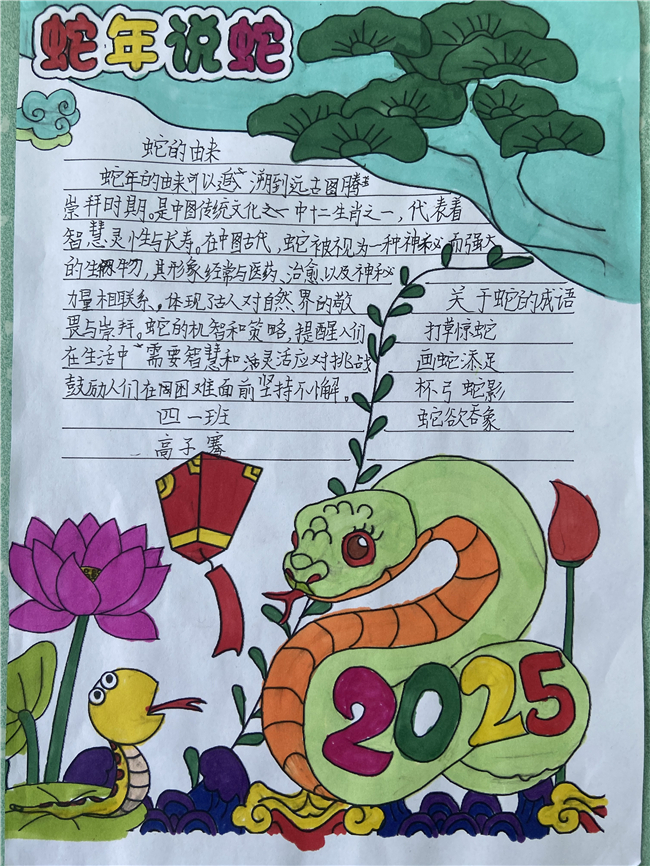 蛇年说蛇
蛇的由来
蛇年的由来可以追溯到远古图腾
崇拜时期。是中国传统文化之一中十二生肖之一，代表着
智慧灵性与长寿。在中国古代，蛇被视为一种神秘而强大
的生物，其形象经常与医药、治愈以及神秘
力量相联系。体现古人对自然界的敬
畏与崇拜。蛇的机智和策略，提醒人们
在生活中需要智慧和灵活应对挑战
鼓励人们在困难面前坚持不懈。
四一班
高子骞
关于蛇的成语
打草惊蛇
画蛇添足
杯弓蛇影
蛇欲吞象
2025